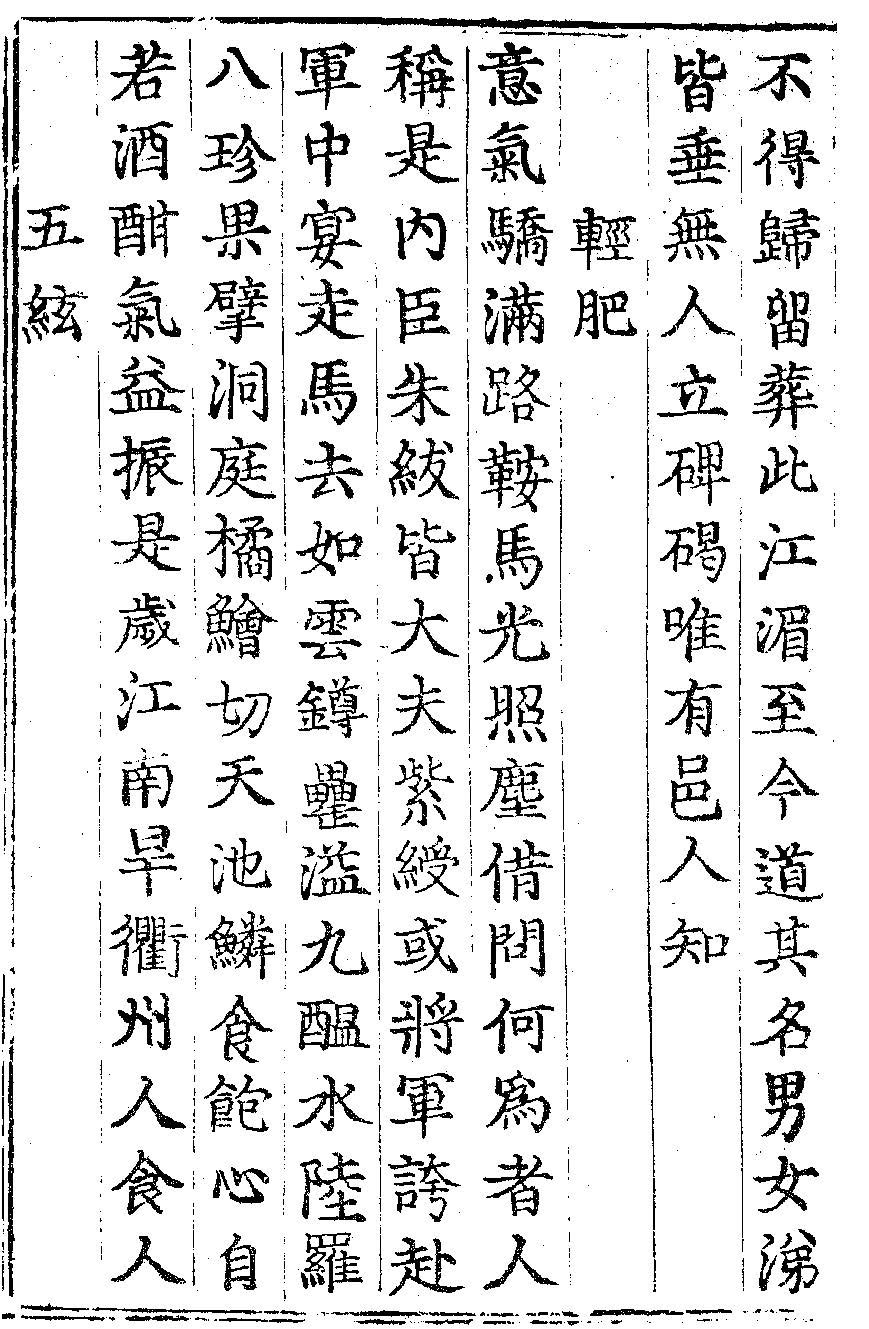 不得歸留葬此江湄至今道其名男女涕
皆垂無人立碑碣唯有邑人知
輕肥
意氣驕滿路鞍馬光照塵借問何爲者人
稱是內臣朱紱皆大夫紫綬或將軍誇赴
軍中宴走馬去如雲鐏罍溢九醞水陸羅
八珍果擘洞庭橘鱠切天池鱗食飽心自
若酒酣氣益振是歲江南旱衢州人食人
五絃